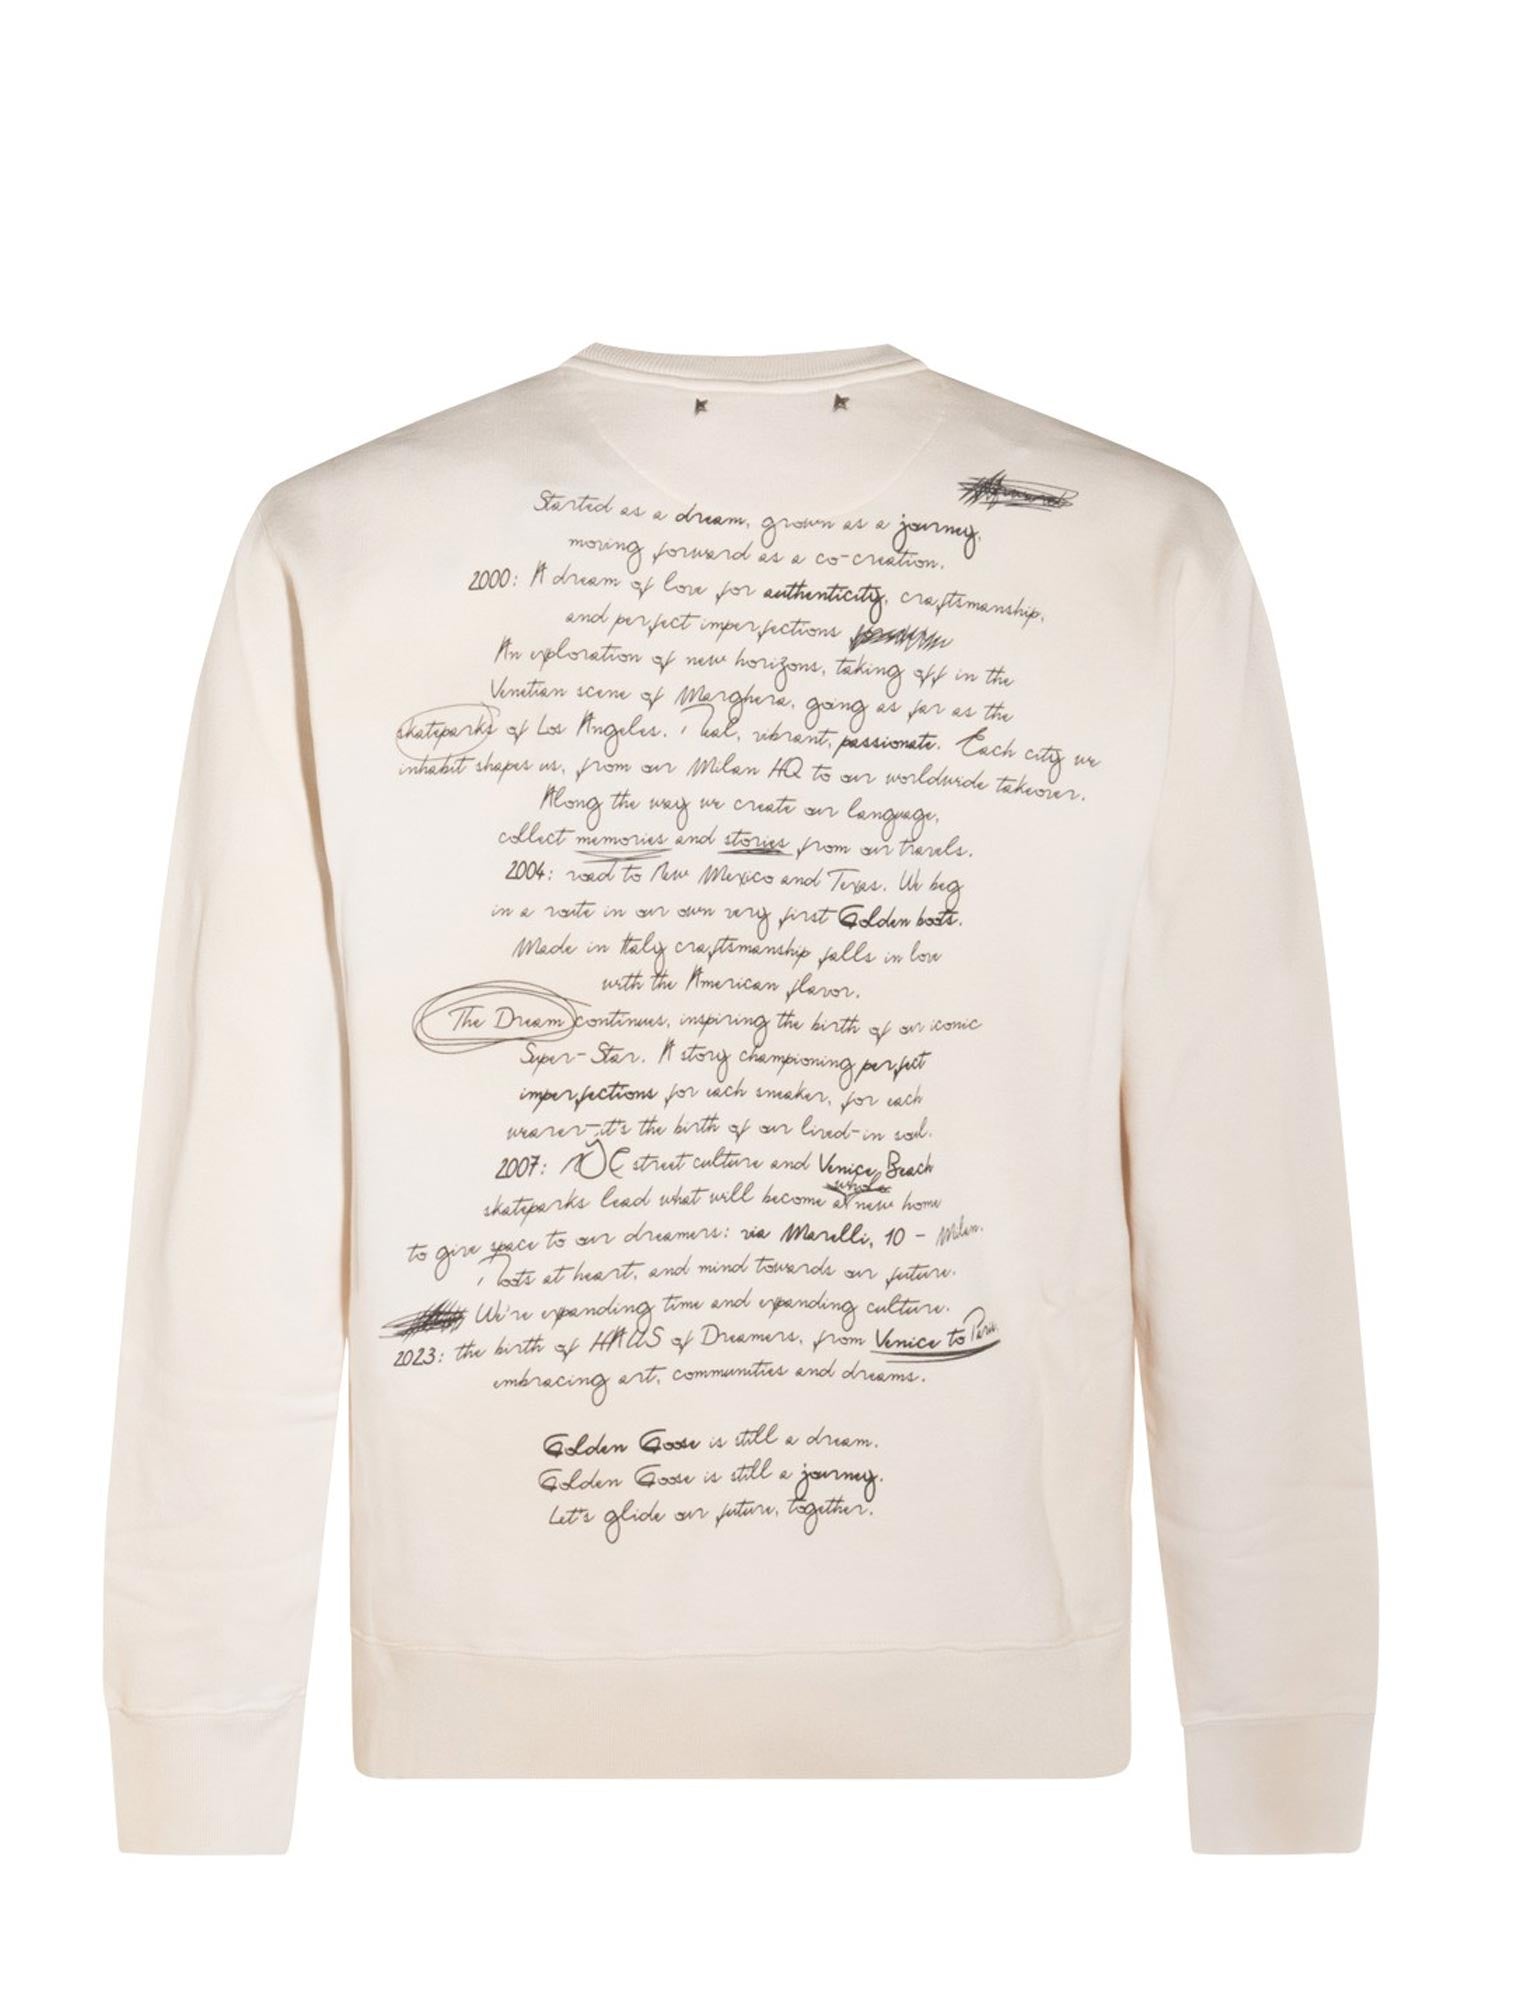 Started as a dream, grown as a journey,
moving forward as a co-creation.
2000: A dream of love for authenticity, craftsmanship,
and perfect imperfections
An exploration of new horizons, taking off in the
Venetian scene of Marghera, going as far as the
skateparks of Los Angeles. Real, vibrant, passionate. Each city we
inhabit shapes us, from our Milan HQ to our worldwide takeover.
Along the way we create our language,
collect memories and stories from our travels.
2004: road to New Mexico and Texas. We beg
in a route in our own very first Golden boots.
Made in Italy craftsmanship falls in love
with the American flavor.
The Dream continues, inspiring the birth of our iconic
Super-Star. A story championing perfect
imperfections for each sneaker, for each
wearer-it's the birth of our lived-in soul.
2007: NYC street culture and Venice Beach
whole
skateparks lead what will become a new home
to give space to our dreamers: via Marelli, 10 - Milan.
Roots at heart, and mind towards our future.
We're expanding time and expanding culture.
2023: the birth of HAUS of Dreamers, from Venice to Paris.
embracing art, communities and dreams.
Golden Goose is still a dream.
Golden Goose is still a journey.
Let's glide our future, together.